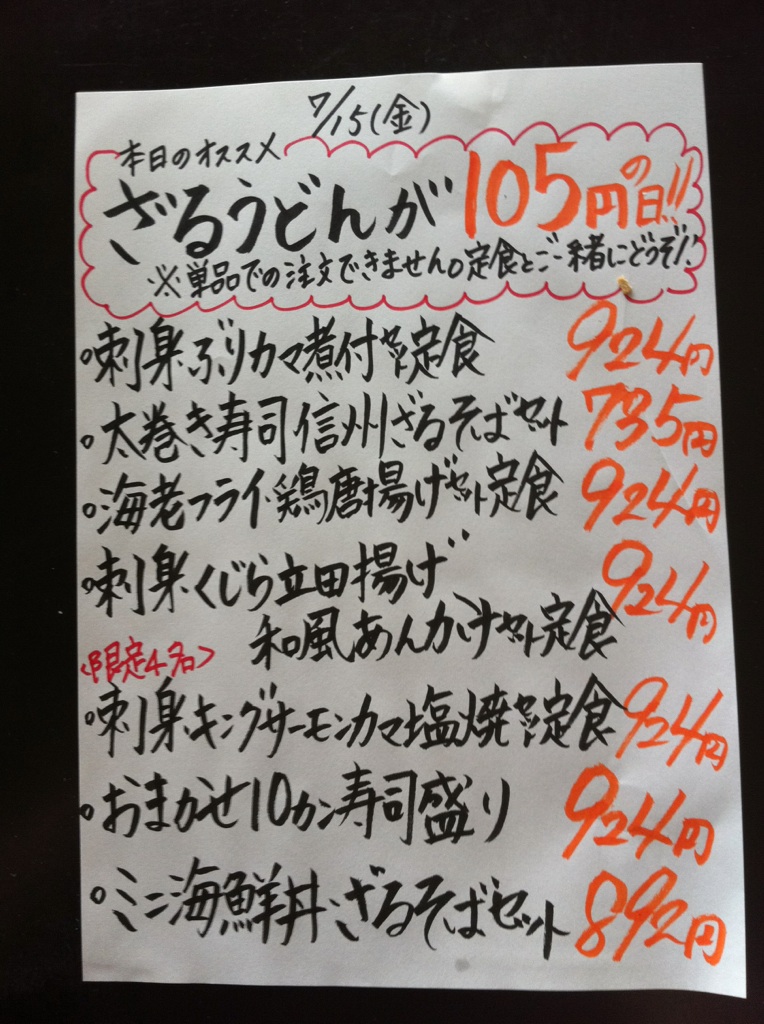 7/15(金)
本日のオススメ
ざるうどんが105円の日!!
※単品での注文できません。定食とご一緒にどうぞ!!
・刺身ぶりカマ煮付セット定食 924円
・太巻き寿司信州ざるそばセット 735円
・海老フライ・鶏唐揚げセット定食 924円
・刺身くじら立田揚げ 924円
和風あんかけセット定食
<限定4名>
・刺身キングサーモンカマ塩焼セット定食 924円
・おまかせ10カン寿司盛り 924円
・ミニ海鮮丼・ざるそばセット 892円